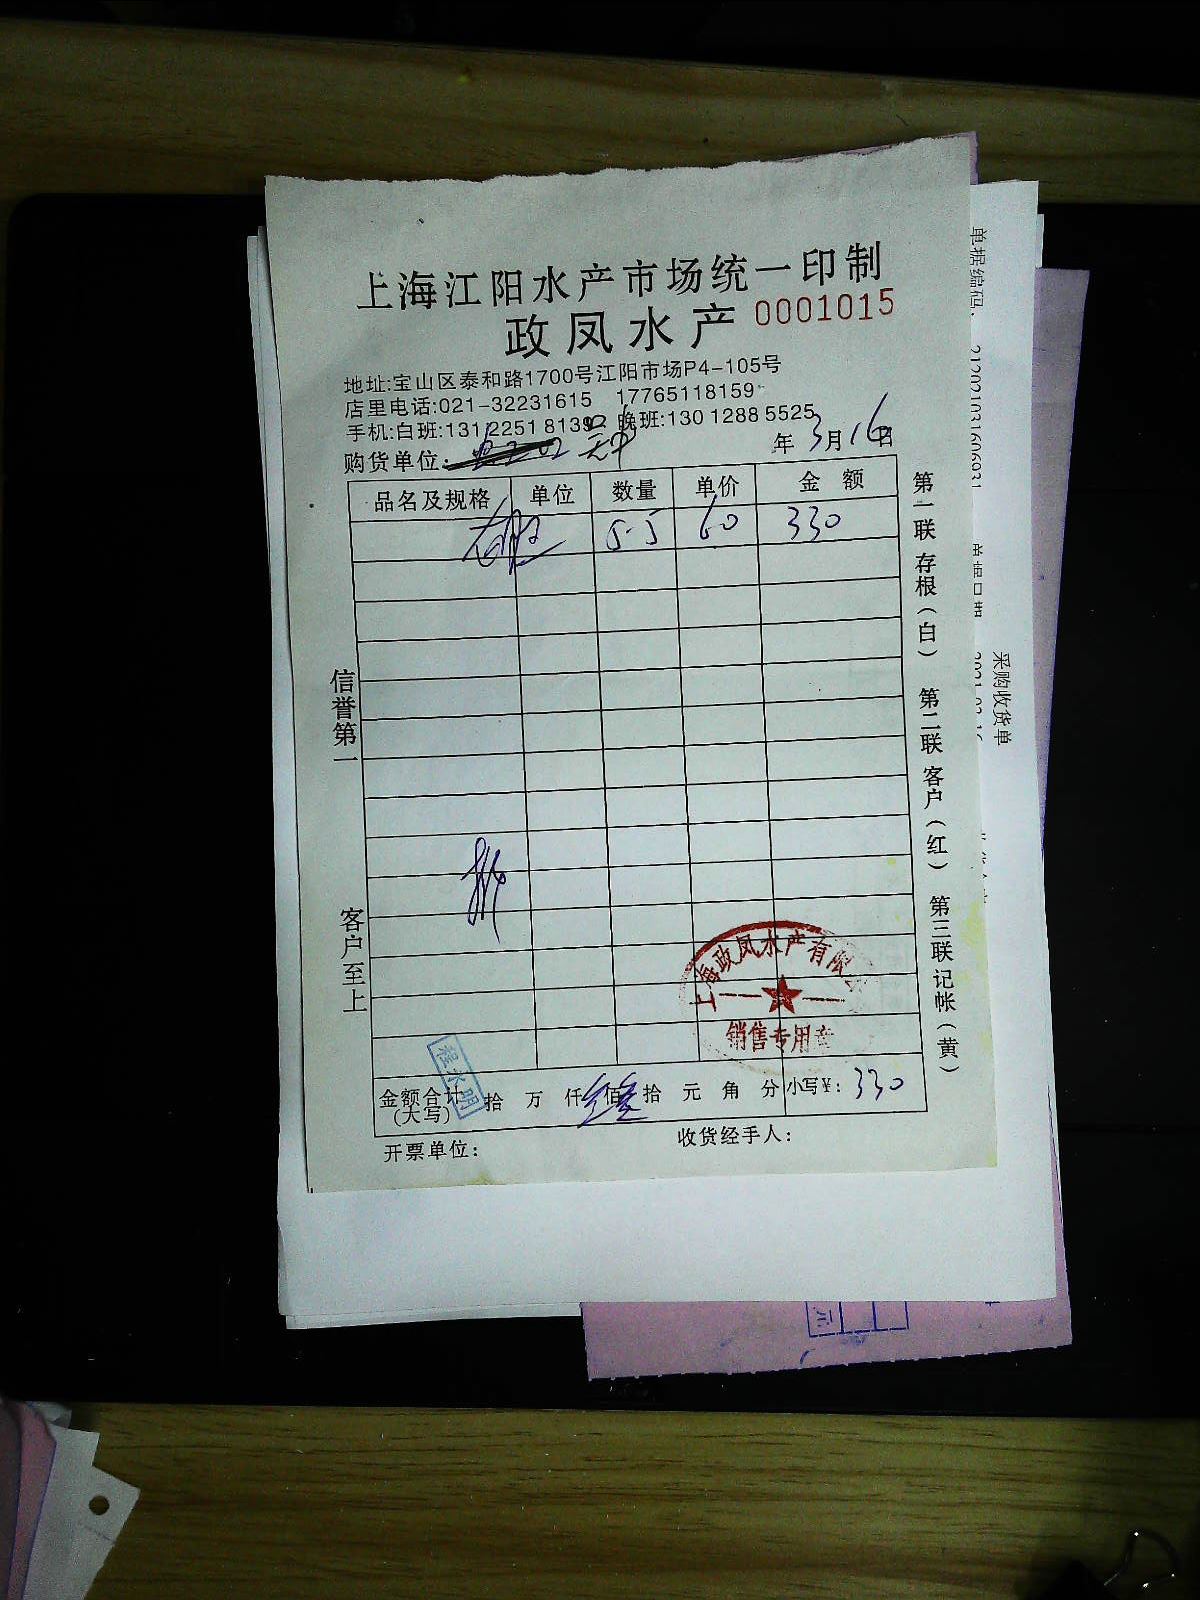 上海江阳水产市场统一印制
政凤水产 0001015
地址:宝山区泰和路1700号江阳市场P4-105号
店里电话:021-32231615 17765118159
手机:白班:131 2251 8139 晚班:130 1288 5525
购货单位: 年3月16日
品名及规格 单位 数量 单价 金额
5.5 60 330
信誉第一
客户至上
第一联 存根(白) 第二联 客户(红) 第三联 记帐(黄)
上海政凤水产有限
销售专用章
程水明
金额合计 拾 万 仟 佰 拾 元 角 分 小写¥: 330
(大写)
开票单位: 收货经手人:
单据编码:
采购收货单
元